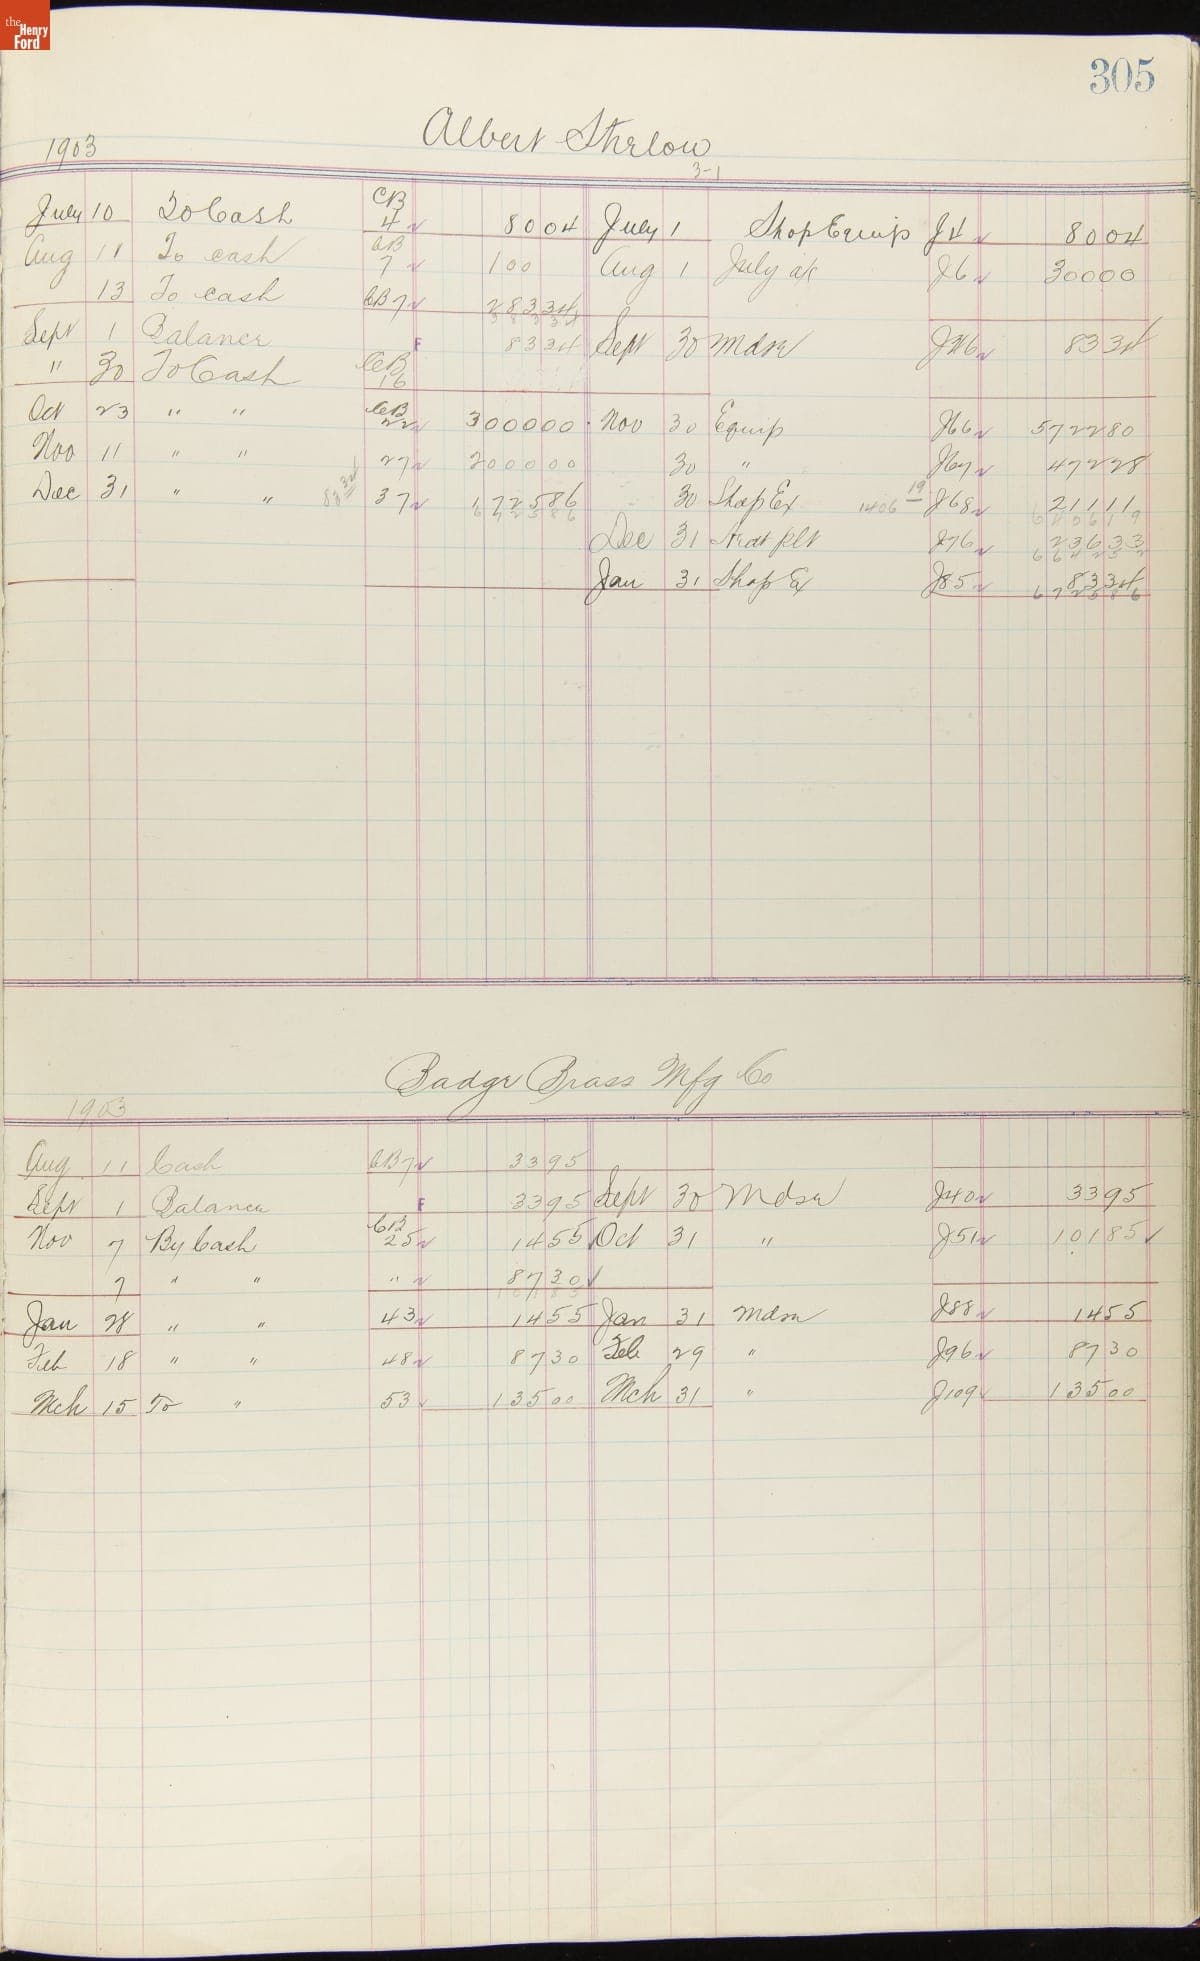 the Henry Ford
305
Albert Strelow
1903
3-1
July 10 To Cash CB 4 8004 July 1 Shop Equip J4 8004
Aug 11 To cash CB 7 100 Aug 1 July a/c J6 30000
13 To cash CB7 28334
38334
Sept 1 Balance F 8334 Sept 30 Mdse 8334
" 30 To Cash CB 16
Oct 23 " " CB 22 300000 Nov 30 Equip J66 572280
Nov 11 " " 27 200000 30 " J67 47228
Dec 31 " " 83 34 37 172586 30 Shop Ex 1406 19 J68 21111
672586 640619
Dec 31 Plt J76 23633
664252
Jan 31 Shop Ex J85 8334
672586
Badger Brass Mfg Co
1903
Aug 11 Cash CB7 3395
Sept 1 Balance F 3395 Sept 30 Mdse J40 3395
Nov 7 By Cash CB 25 1455 Oct 31 " J51 10185
7 " " " 8730
10185
Jan 28 " " 43 1455 Jan 31 Mdse J88 1455
Feb 18 " " 48 8730 Feb 29 " J96 8730
Mch 15 To " 53 13500 Mch 31 " J109 13500